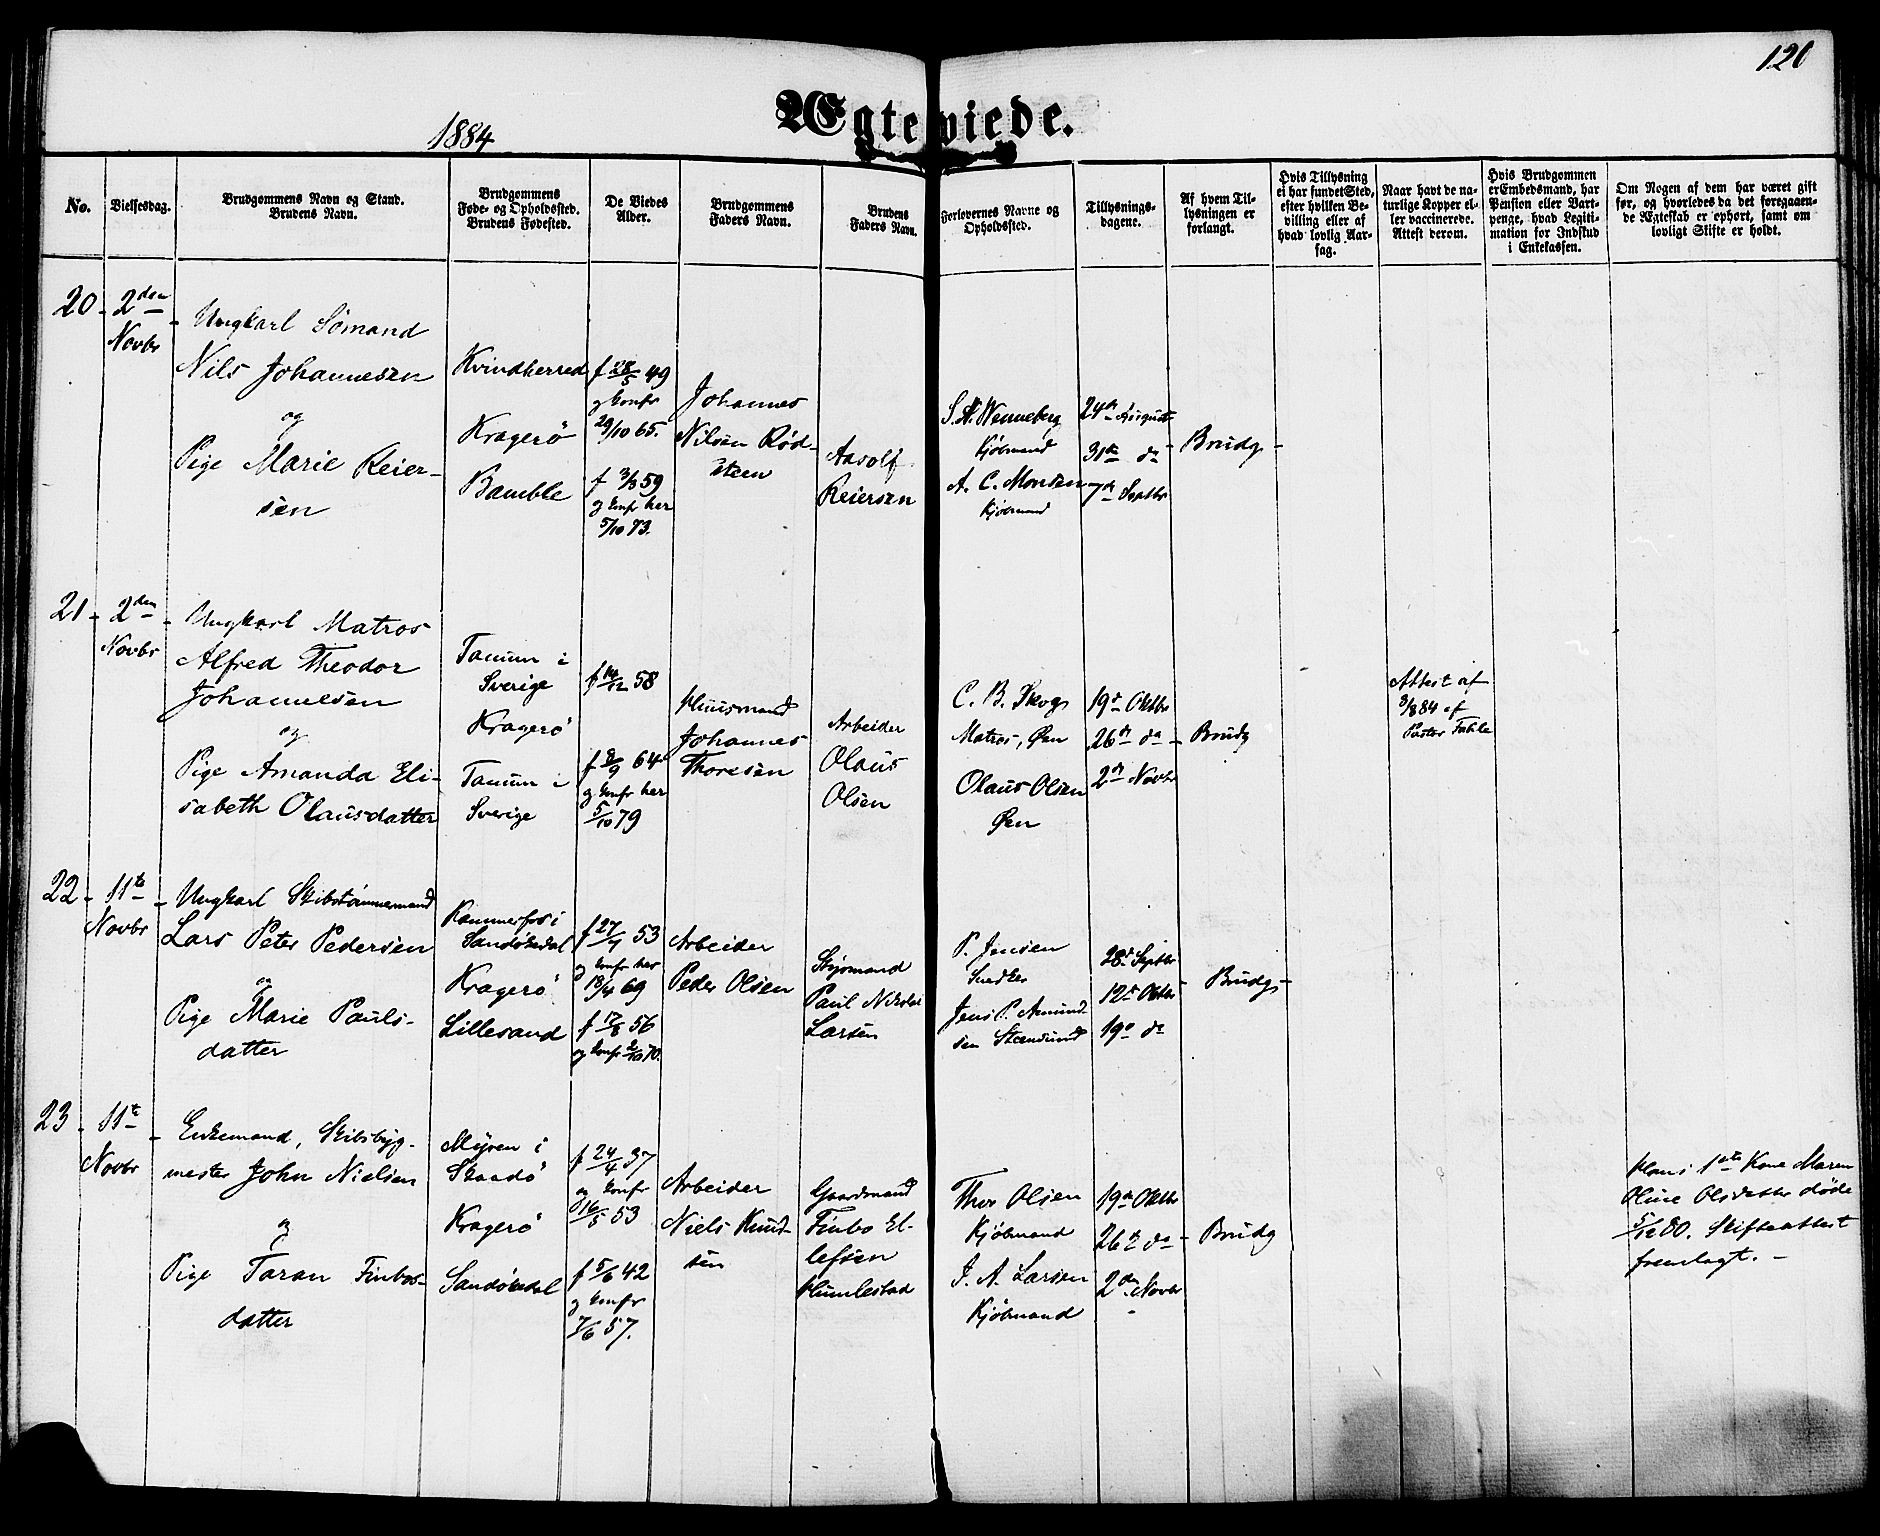 120
1884
Ægteviede.
No.
Vielsesdag.
Brudgommens Navn og Stand.
Brudens Navn.
Brudgommens
Føde- og Opholdssted.
Brudens Fødested.
De Viedes
Alder.
Brudgommens
Faders Navn.
Brudens
Faders Navn.
Forlovernes Navne og
Opholdssted.
Tillysnings-
dagene.
Af hvem Til-
lysningen er
forlangt.
Hvis Tillysning
ei har fundet Sted,
efter hvilken Be-
villing eller af
hvad lovlig Aar-
sag.
Naar havt de na-
turlige Kopper el-
ler vaccinerede.
Attest derom.
Hvis Brudgommen
er Embedsmand, har
Pension eller Vart-
penge, hvad Legiti-
mation for Indskud
i Enkekassen.
Om Nogen af dem har været gift
før, og hvorledes da det foregaaen-
de Ægteskab er ophørt, samt om
lovligt Skifte er holdt.
20 - 2den
Novbr
Ungkarl Sömand
Nils Johannesen
og
Pige Marie Reier-
sen
Kvindherred
Kragerö
Bamble
f 28/5 49
og konfr
29/10 65.
f 3/3 59
og konfr her
5/10 73.
Johannes
Nilsen Röd-
steen
Aavolf
Reiersen
S. N. Wenneberg
Kjöbmand
A. C. Monsen
Kjöbmand
24de August
31te do
7de Septbr
Brudg -
21 - 2den
Novbr
Ungkarl Matros
Alfred Theodor
Johannesen
og
Pige Amanda Eli-
sabeth Olausdatter
Tanum i
Sverige
Kragerö
Tanum i
Sverige
f 14/12 58
f 8/9 64
og konfr her
5/10 79
Huusmand
Johannes
Thoresen
Arbeider
Olaus
Olsen
C. B. Skog
Matros, Øen
Olaus Olsen
Øen
19de Oktbr
26de do -
2den Novbr
Brudg
Attest af
3/8 84 af
Pastor
22 - 11te
Novbr
Ungkarl Skibstömmermand
Lars Peter Pedersen
og
Pige Marie Pauls-
datter
Kammerfos i
Sandökedal
Kragerö
Lillesand
f 27/7 53
og konfr her
18/4 69
f 17/8 56
og konfr 2/10 70.
Arbeider
Peder Olsen
Styrmand
Paul Nikolai
Larsen
P. Jensen
Snedker
Jens P. Amund-
sen Strandsund
28de Septbr
12te Oktbr
19de do
Brudg -
23 - 11te
Novbr
Enkemand, Skibsbyg-
mester John Nielsen
og
Pige Taran Finbos-
datter
Myren i
Skaadö
Kragerö
Sandökedal
f 24/4 37
og konfr
16/5 53
f 5/6 42
og konfr
7/6 57.
Arbeider
Niels Knud-
sen
Gaardmand
Finbo El-
lefsen
Humlestad
Thor Olsen
Kjöbmand
J. A. Larsen
Kjöbmand
19de Oktbr
26de do -
2den Novbr
Brudg
Hans 1ste Kone Maren
Oline Olsdatter döde
5/12 80. Skifteattest
fremlagt. -